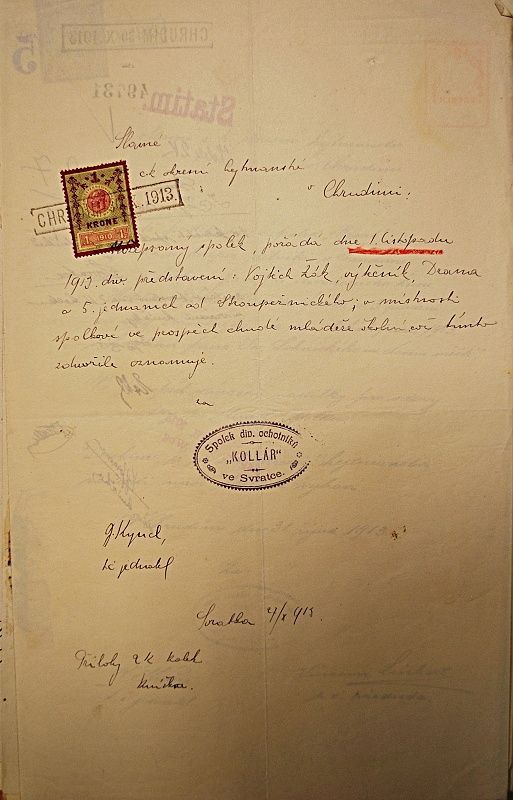 CHRUDIM X. 1913
Statim.
Slavné
ck okresní hejtmanství
v Chrudimi.
CHR 1913.
1
KRONE
1 1910 1
spolek, pořádá dne 1. listopadu
1913 div představení: Vojtěch Žák, výtečník, Drama
o 5. jednáních od Stroupežnického; v místnosti
spolkové ve prospěch chudé mládeže školní, což tímto
zdvořile oznamuje.
za
Spolek div. ochotníků
„KOLLÁR“
ve Svratce.
jednatel
Svratka 4/X 913.
Přílohy 2 K kolek